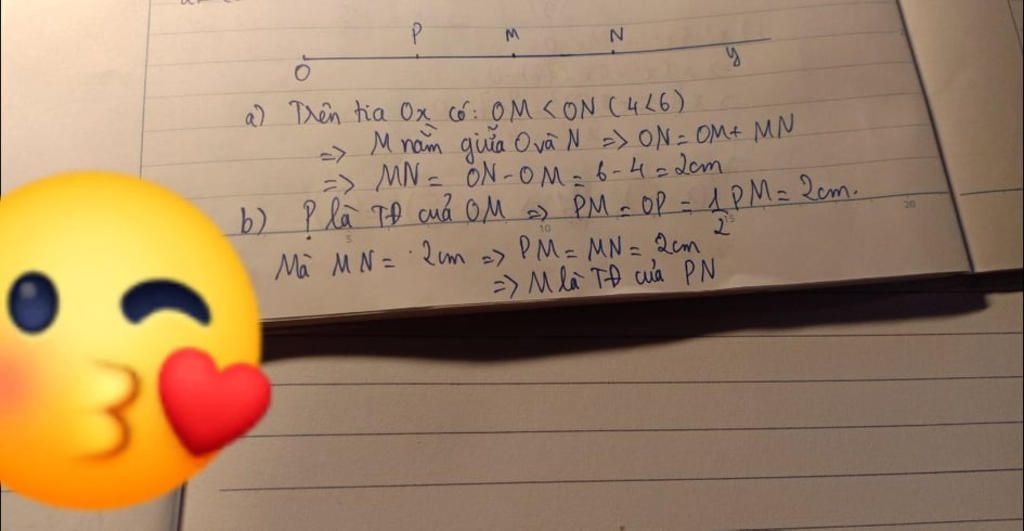 P M N
O y
a) Trên tia Ox có: OM < ON (4<6)
=> M nằm giữa O và N => ON = OM + MN
=> MN = ON - OM = 6 - 4 = 2cm
b) P là TĐ của OM => PM = OP = 1/2 PM = 2cm.
Mà MN = 2cm => PM = MN = 2cm
=> M là TĐ của PN
5 10 15 20